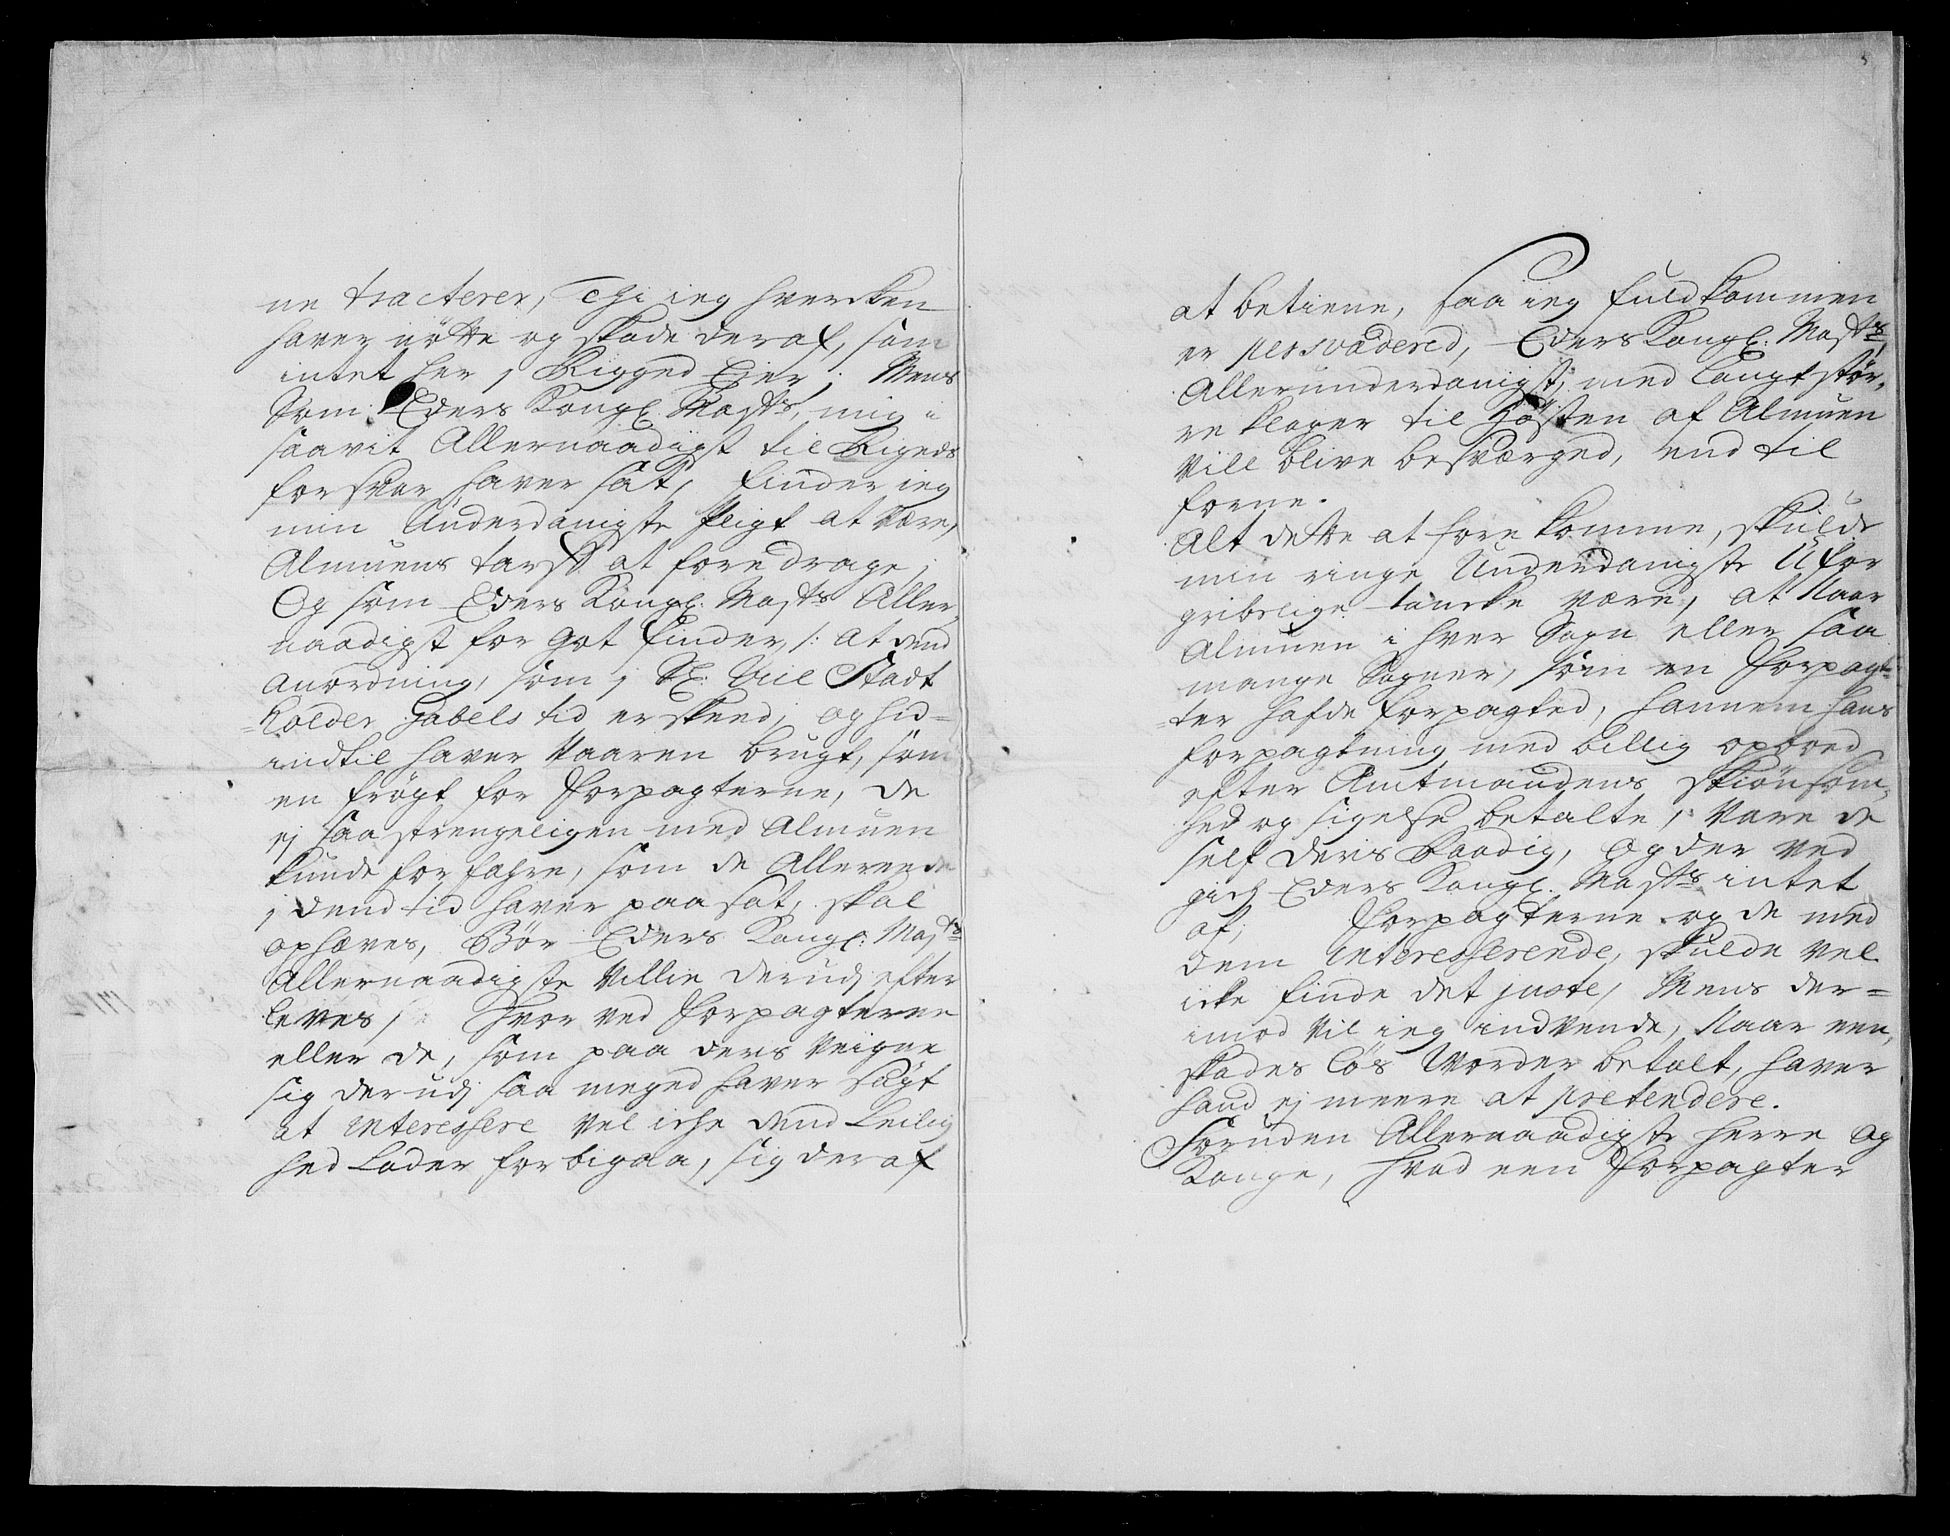 ne tracterer, Thi ieg hvercken
haver nötte og skade deraf, som
intet her i Rigged Ejer; Mens
Som Eders Kongl: Maÿts, mig i
saavit Allernaadigst til Rigeds
forsvar haver sat, finder ieg
min Underdanigste Pligt at være,
Almuens tarff at foredrage,
Og som Eders Kongl: Maÿts Aller
naadigst for got finder, /: at dend
anordning, som i Sl: Vice Stadt
holder Gabels tid er skeed, og hid=
indtil haver Vaaren brugt, som
en frögt for Forpagterne, de
ej saa strengeligen med Almuen
kunde forfahre, som de Allereede
i dend tid haver paasat, skal
ophæves, Bör Eders Kongl: Maÿts
Allernaadigste Villie derudj efter
leves, Hvor ved Forpagterne
eller de, som paa ders Veigne
sig derudj saa meged haver sögt
at interessere vel icke dend Leilig
hed Lader forbigaa, sig deraf
at betiene, saa ieg fuldkommen
er persvadered, Eders Kongl: Maÿts
Allerunderdanigst, med langt stör,
re klager til Hösten af Almuen
vill blive besværged, end til
forne.
Alt dette at forekomme, skulde
min ringe Underdanigste Ufor
gribelige tancke være, at Naar
Almuen i hver Sogn eller saa
mange Sogner, som en Forpag=
ter hafde forpagted, hannem hans
forpagtning med billig opbred
efter Amtmandens skiönsom,
hed og sigelse betalte, Vare de
self deris Raadig, og der ved
gich Eders Kongl: Maÿts intet
af, Forpagterne og de med
dem interesserende, skulde vel
icke finde det juste, Mens der=
imod vil ieg indvende, Naar een,
skades lös Worder betalt, haver
hand ej meere at pretendere.
Foruden Allernaadigste Herre og
Konge, Hvad een Forpagter